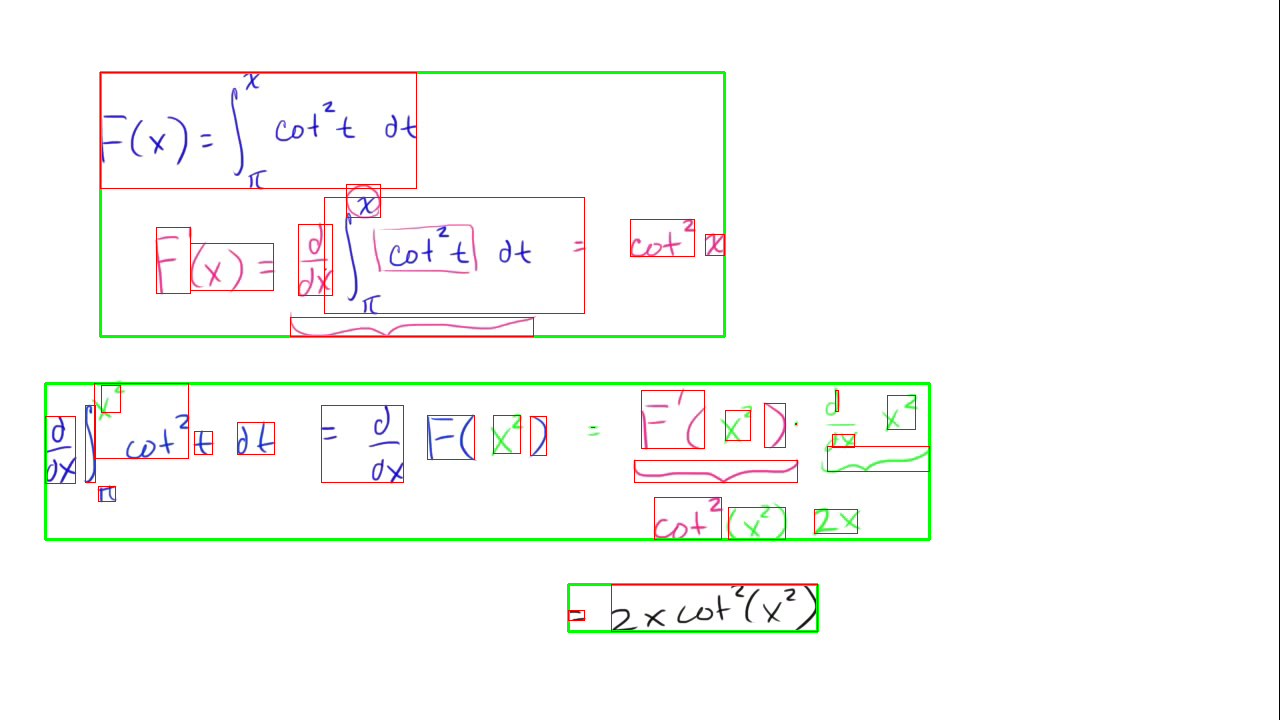 F(x) = ∫_π^x cot²t dt
F(x) = d/dx ∫_π^x cot²t dt = cot² x
d/dx ∫_π^{x²} cot² t dt = d/dx F(x²) = F'(x²) · d/dx x²
cot² (x²) 2x
= 2x cot²(x²)